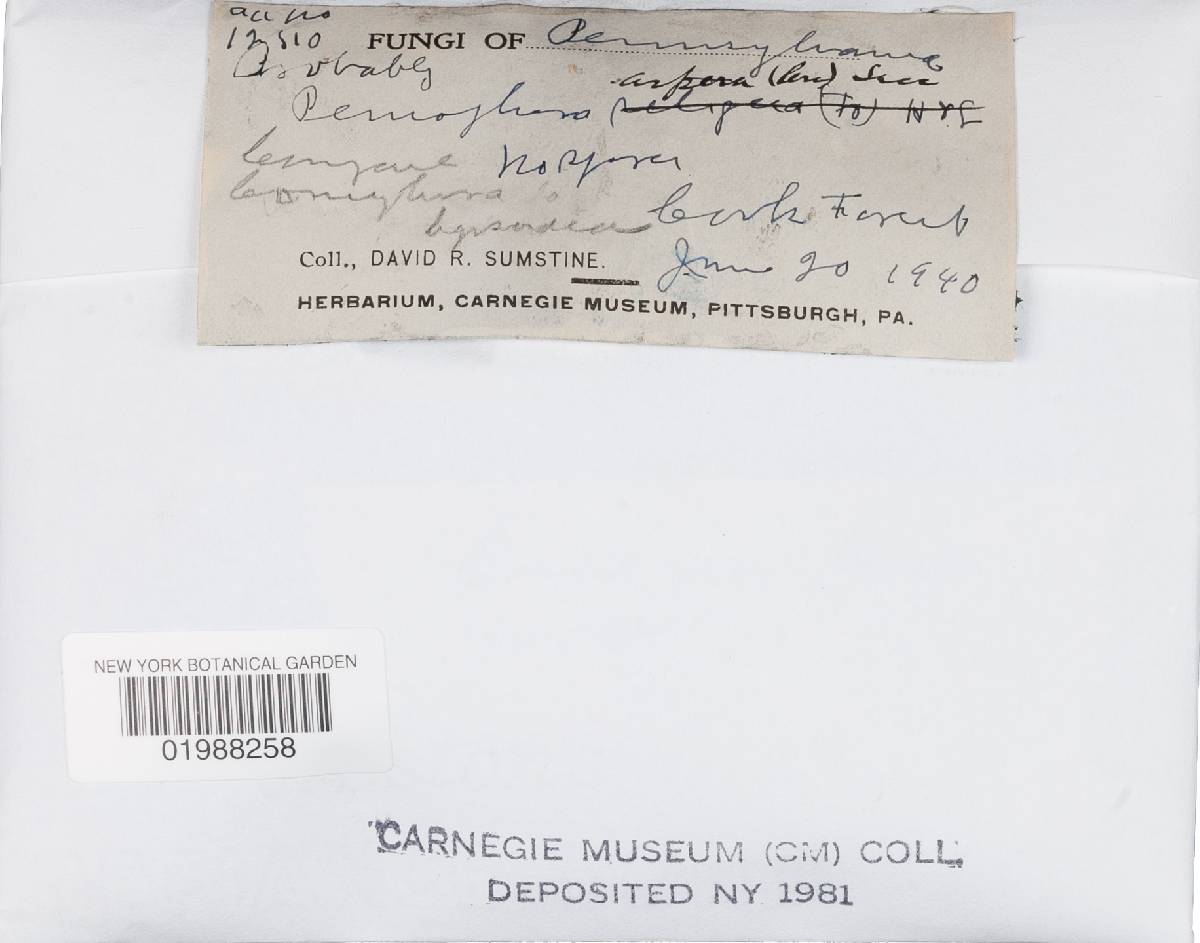 acc no
12510 FUNGI OF Pennsylvania
Probably
aspera (Pers) Sacc
Peniophora setigera (Fr) H & L
Compare no spores
Coniophora
byssoidea Cook Forest
Coll., DAVID R. SUMSTINE. June 20 1940
HERBARIUM, CARNEGIE MUSEUM, PITTSBURGH, PA.
NEW YORK BOTANICAL GARDEN
01988258
CARNEGIE MUSEUM (CM) COLL.
DEPOSITED NY 1981